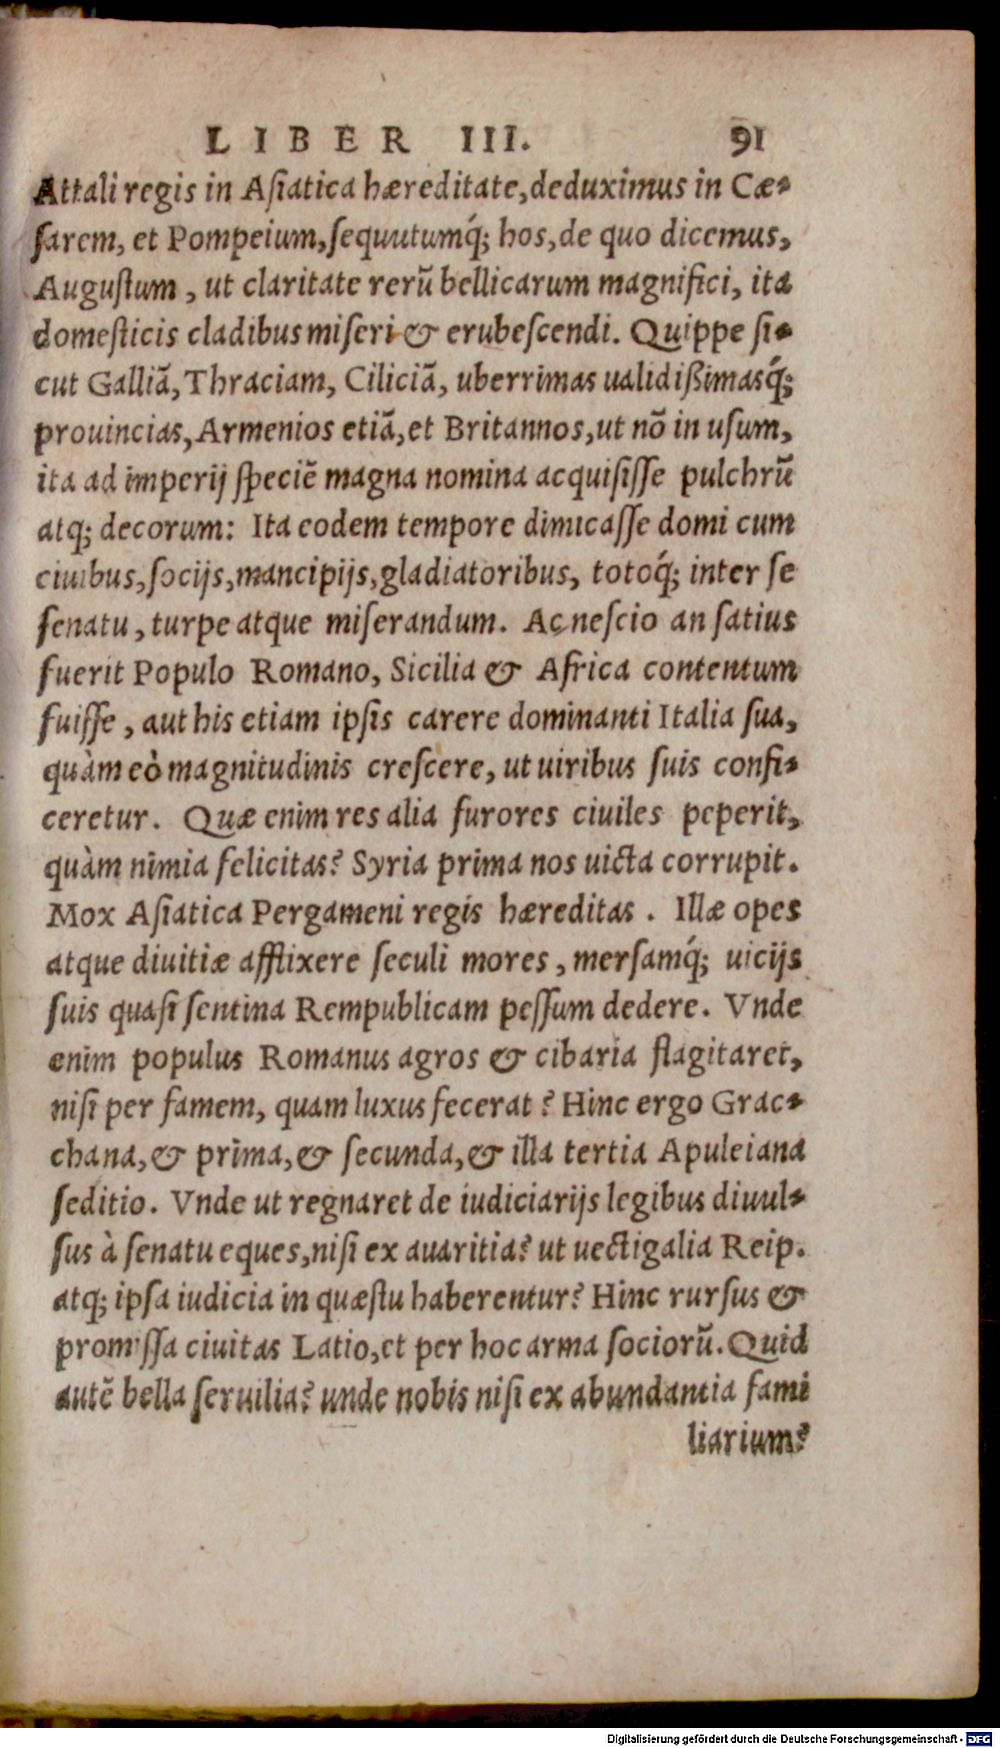 LIBER III. 91
Attali regis in Aſiatica hæreditate,deduximus in Cæ-
ſarem, et Pompeium,ſequutumq́; hos,de quo dicemus,
Auguſtum , ut claritate rerũ bellicarum magnifici, ita
domeſticis cladibus miſeri & erubeſcendi. Quippe ſi-
cut Galliã, Thraciam, Ciliciã, uberrimas ualidißimasq́;
prouincias, Armenios etiã,et Britannos,ut nõ in uſum,
ita ad imperij ſpeciẽ magna nomina acquiſiſſe pulchrũ
atq; decorum: Ita eodem tempore dimicaſſe domi cum
ciuibus,ſocijs,mancipijs,gladiatoribus, totoq́; inter ſe
ſenatu, turpe atque miſerandum. Ac neſcio an ſatius
fuerit Populo Romano, Sicilia & Africa contentum
fuiſſe , aut his etiam ipſis carere dominanti Italia ſua,
quàm eò magnitudinis creſcere, ut uiribus ſuis confi-
ceretur. Quæ enim res alia furores ciuiles peperit,
quàm nimia felicitas? Syria prima nos uicta corrupit.
Mox Aſiatica Pergameni regis hæreditas . Illæ opes
atque diuitiæ afflixere ſeculi mores , merſamq́; uicijs
ſuis quaſi ſentina Rempublicam peſſum dedere. Vnde
enim populus Romanus agros & cibaria flagitaret,
niſi per famem, quam luxus fecerat? Hinc ergo Grac-
chana,& prima,& ſecunda,& illa tertia Apuleiana
ſeditio. Vnde ut regnaret de iudiciarijs legibus diuul-
ſus à ſenatu eques,niſi ex auaritia? ut uectigalia Reip.
atq; ipſa iudicia in quæſtu haberentur? Hinc rurſus &
promiſſa ciuitas Latio,et per hoc arma ſociorũ. Quid
autẽ bella ſeruilia? unde nobis niſi ex abundantia fami
liarium?
Digitalisierung gefördert durch die Deutsche Forschungsgemeinschaft - DFG